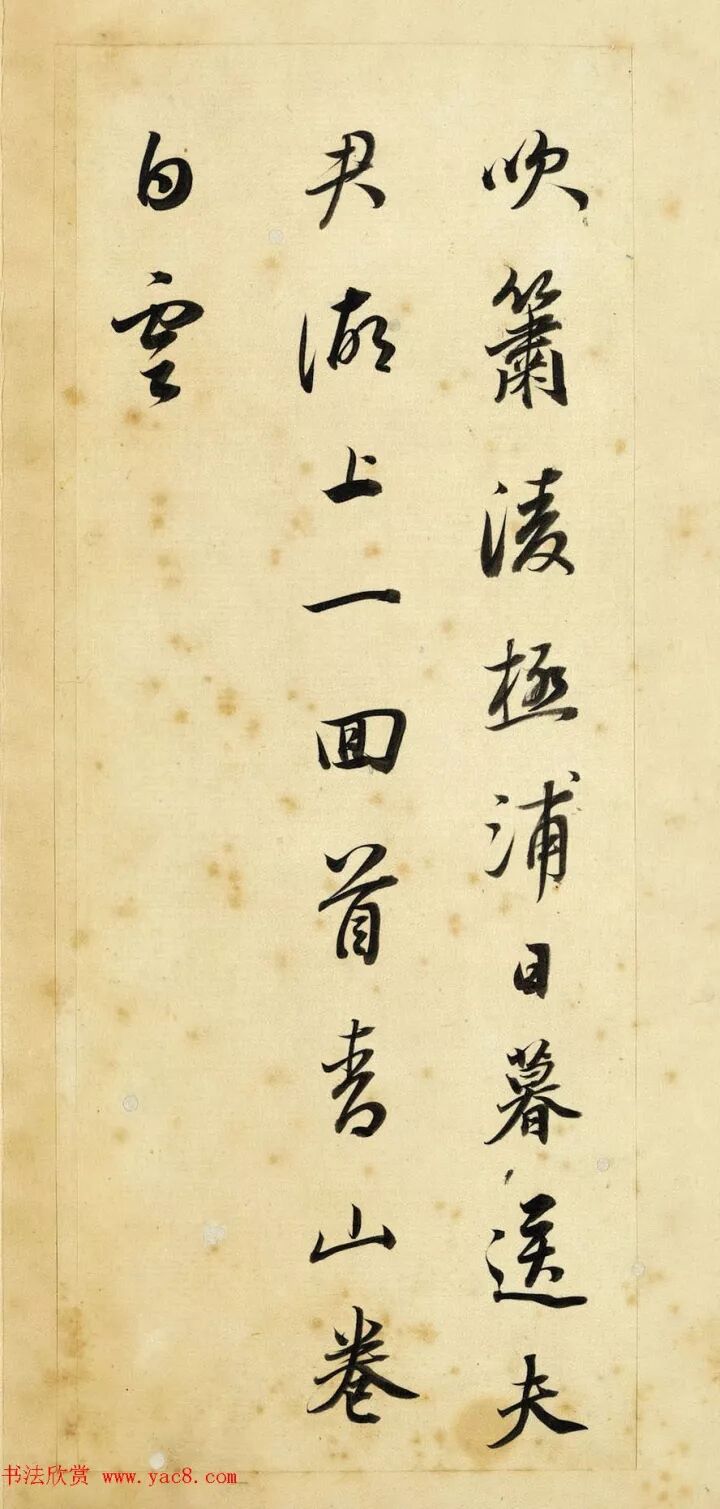 吹簫凌極浦日暮送夫
君湖上一回首青山卷
白雲
书法欣赏 www.yac8.com